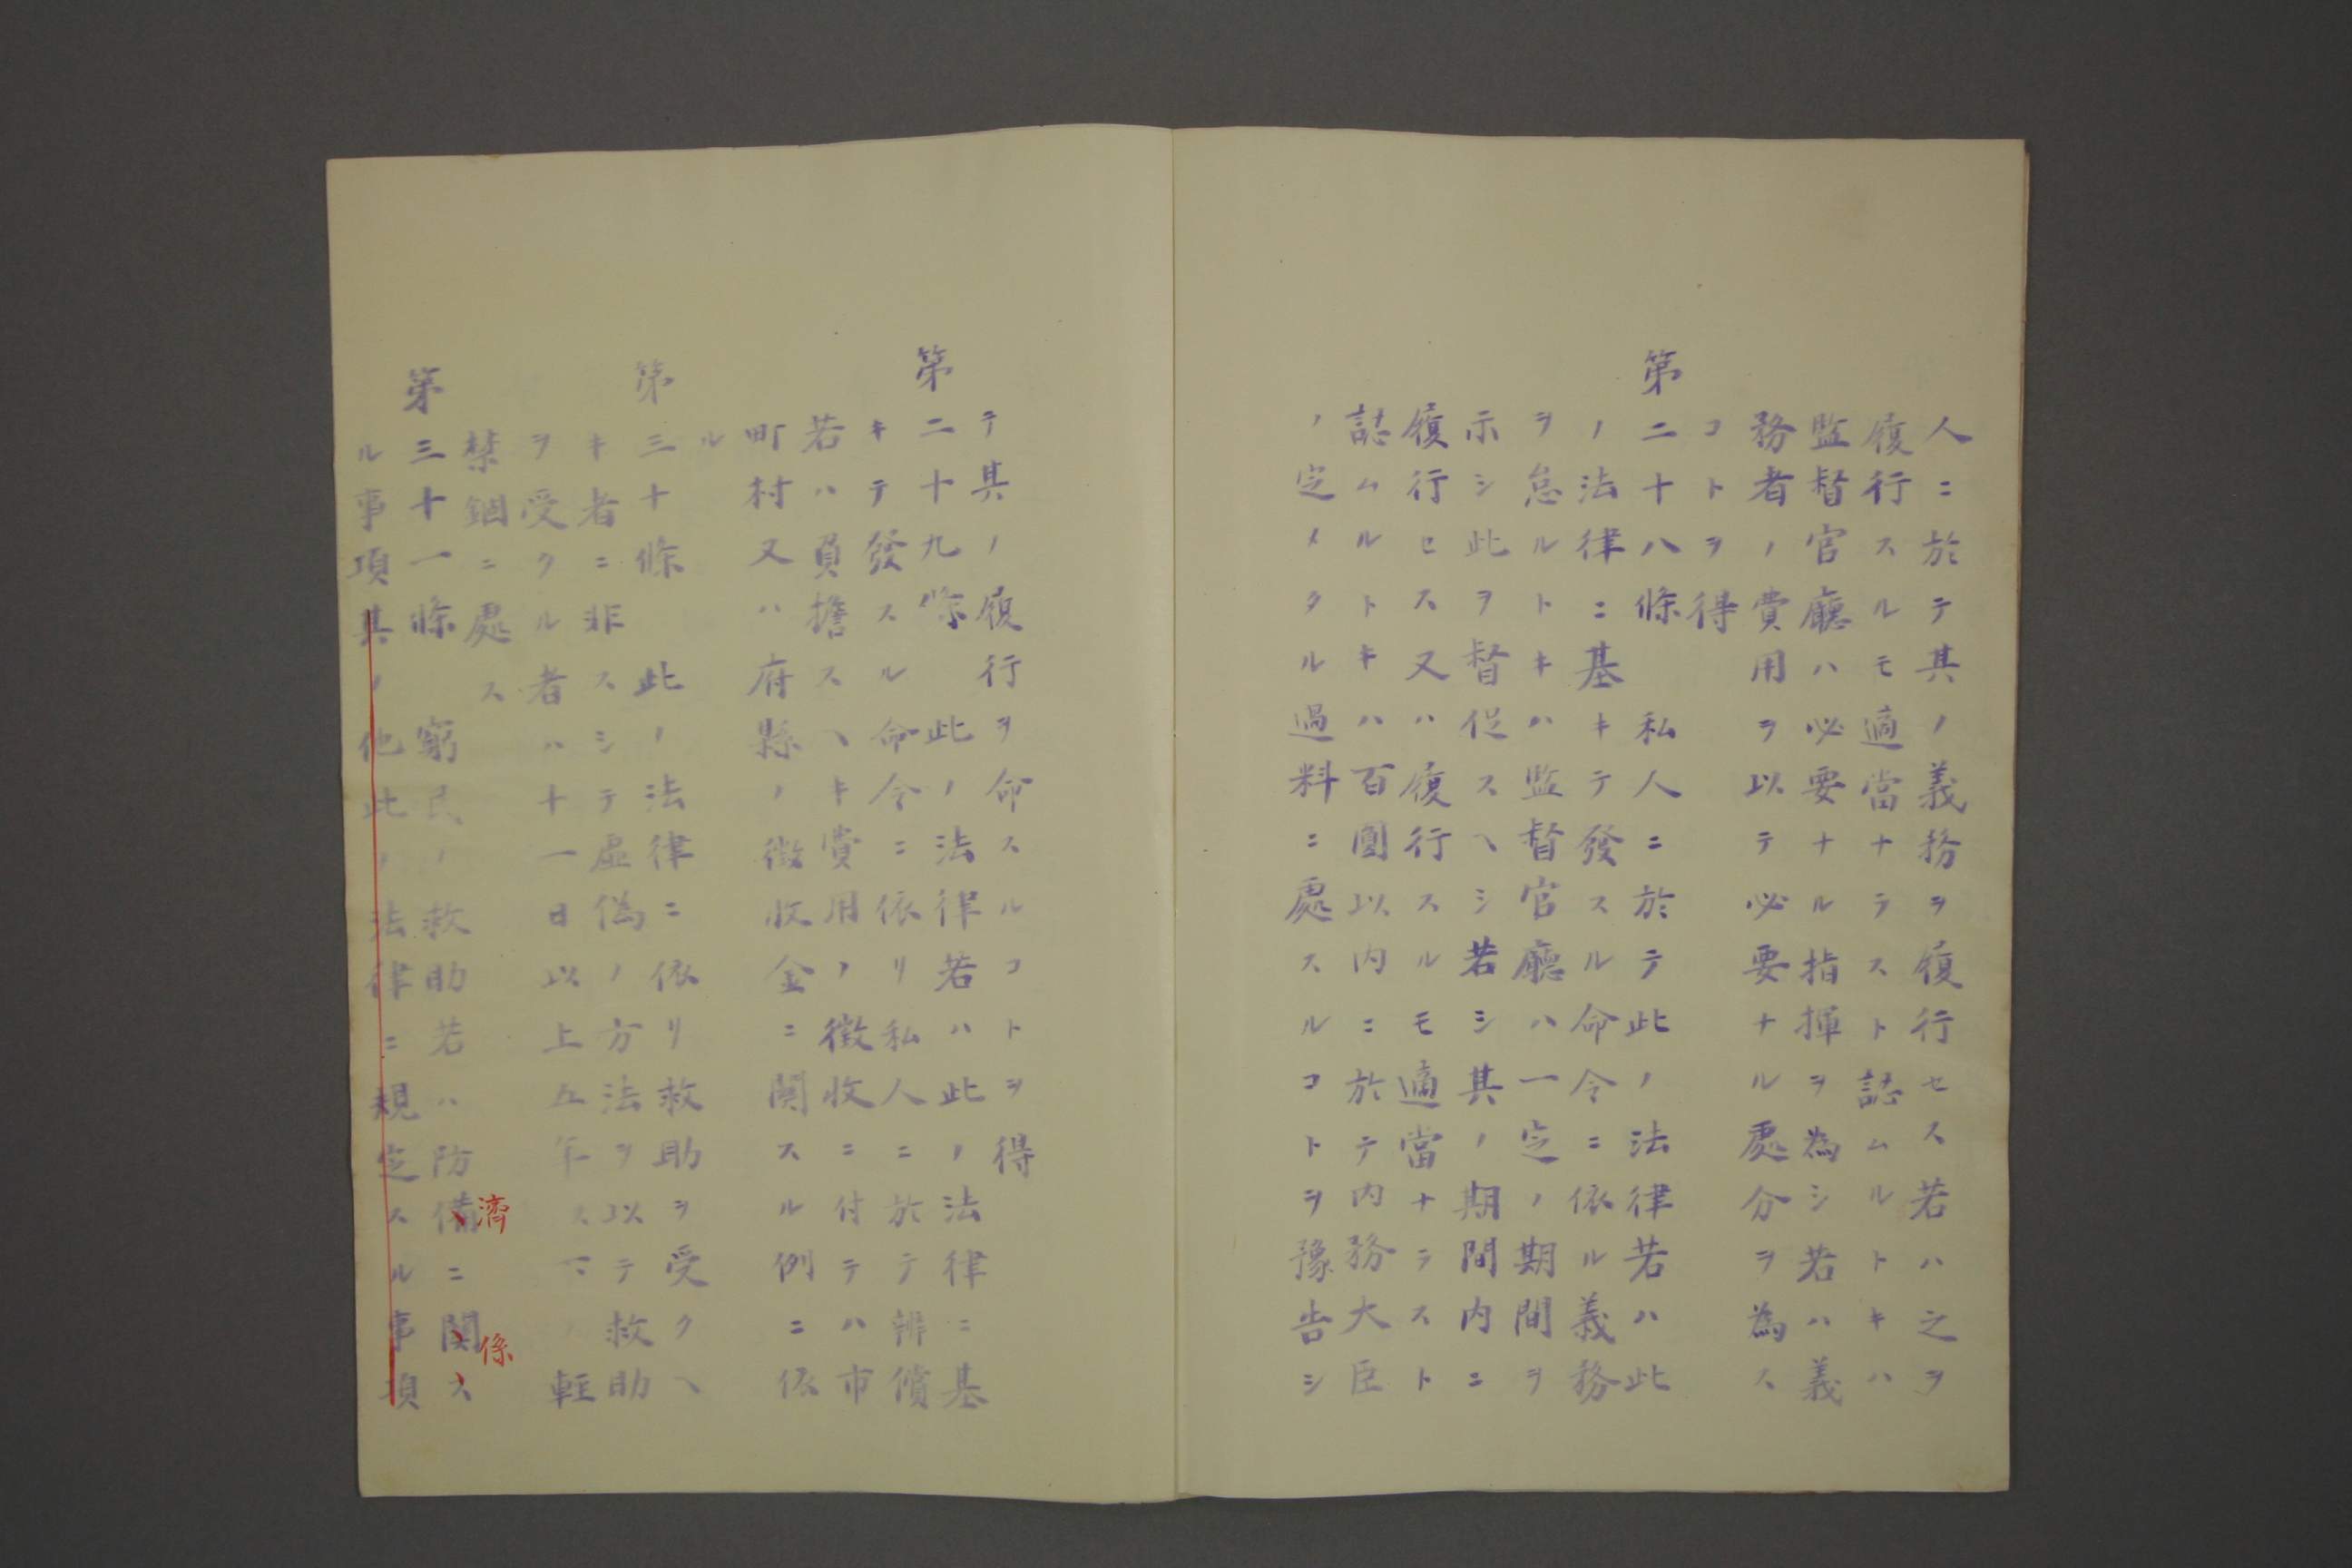 人ニ於テ其ノ義務ヲ履行セス若ハ之ヲ
履行スルモ適當ナラスト認ムルトキハ
監督官廳ハ必要ナル指揮ヲ為シ若ハ義
務者ノ費用ヲ以テ必要ナル處分ヲ為ス
コトヲ得
第二十八條 私人ニ於テ此ノ法律若ハ此
ノ法律ニ基キテ發スル命令ニ依ル義務
ヲ怠ルトキハ監督官廳ハ一定ノ期間ヲ
示シ此ヲ督促スヘシ若シ其ノ期間内ニ
履行セス又ハ履行スルモ適當ナラスト
認ムルトキハ百圓以内ニ於テ内務大臣
ノ定メタル過料ニ處スルコトヲ豫告シ
テ其ノ履行ヲ命スルコトヲ得
第二十九條 此ノ法律若ハ此ノ法律ニ基
キテ發スル命令ニ依リ私人ニ於テ辨償
若ハ負擔スヘキ費用ノ徴收ニ付テハ市
町村又ハ府縣ノ徴收金ニ関スル例ニ依
ル
第三十條 此ノ法律ニ依リ救助ヲ受クヘ
キ者ニ非スシテ虚偽ノ方法ヲ以テ救助
ヲ受クル者ハ十一日以上五年以下ノ輕
禁錮ニ處ス
第三十一條 窮民ノ救助若ハ防備ニ関ス
濟
係
ル事項其ノ他此ノ法律ニ規定スル事項